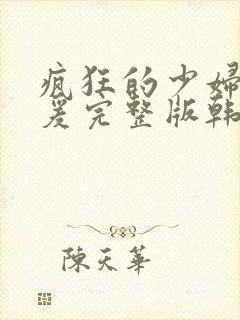 疯狂的少婦
爰完整版韩
陳天華